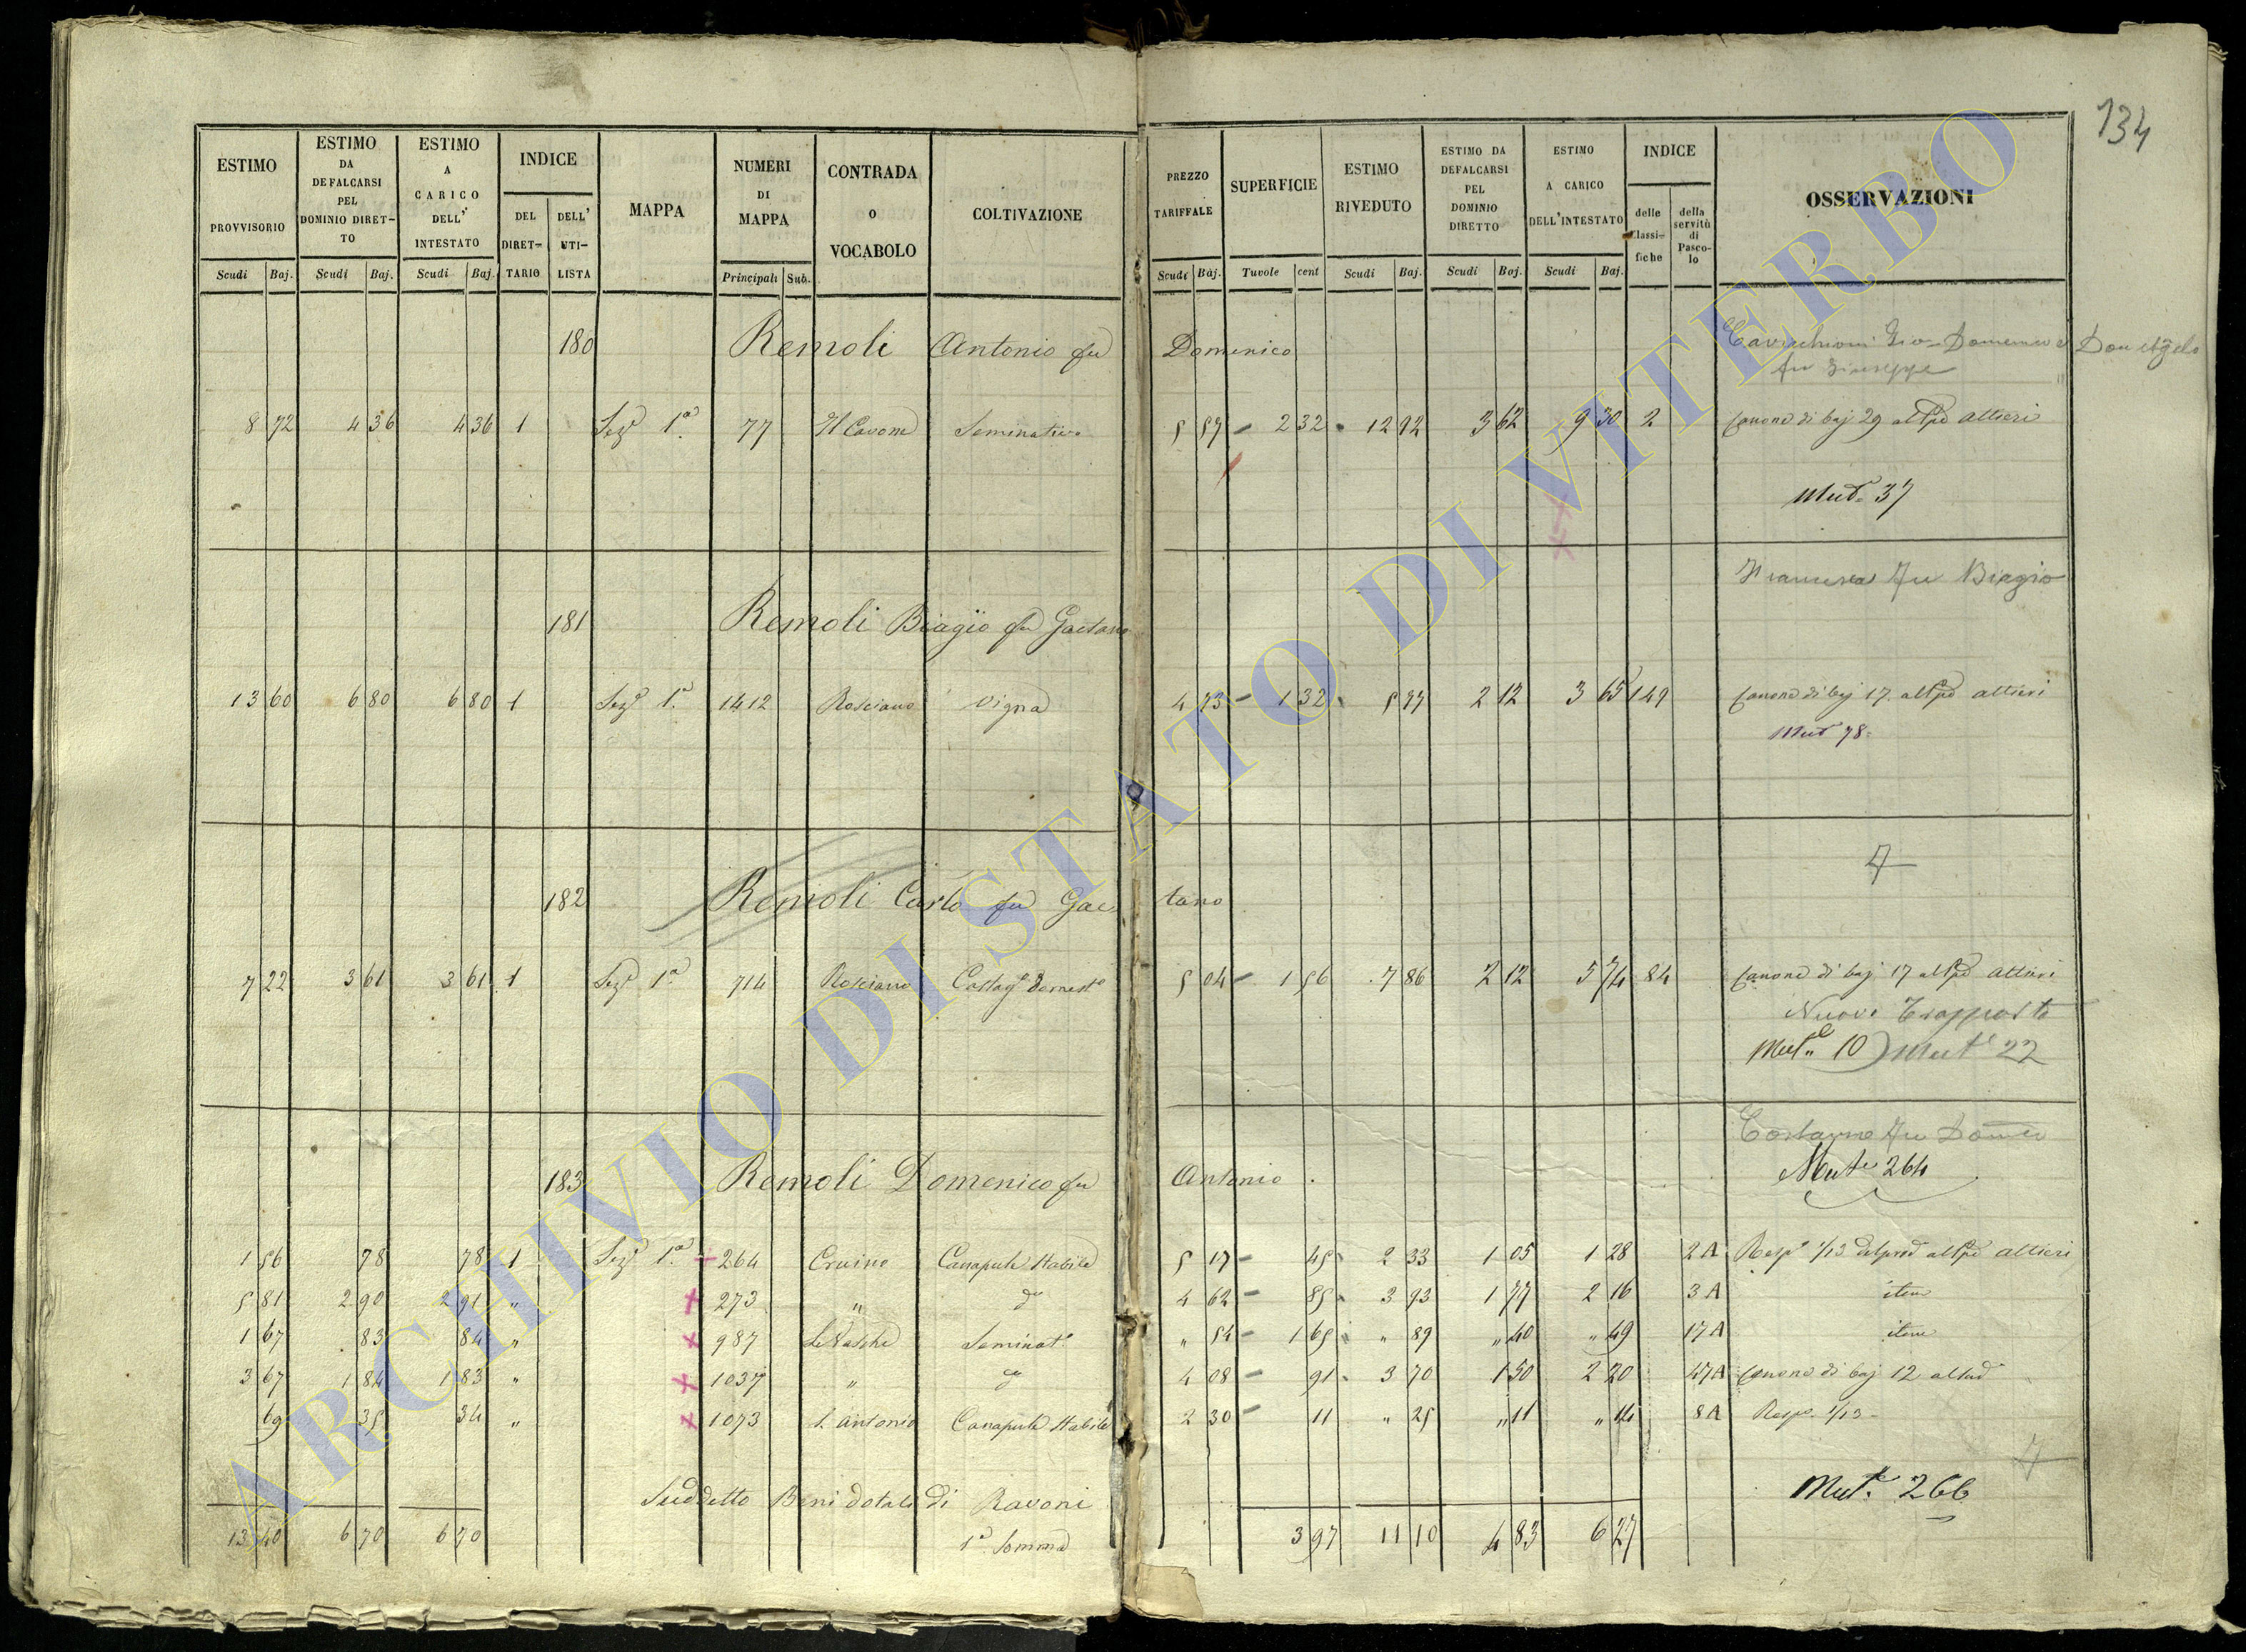 134
ESTIMO PROVVISORIO Scudi Baj.
ESTIMO DA DEFALCARSI PEL DOMINIO DIRET-TO Scudi Baj.
ESTIMO A CARICO DELL' INTESTATO Scudi Baj.
INDICE DEL DIRET-TARIO DELL' UTI-LISTA
MAPPA
NUMERI DI MAPPA Principali Sub.
CONTRADA O VOCABOLO
COLTIVAZIONE
PREZZO TARIFFALE Scudi Baj.
SUPERFICIE Tavole cent
ESTIMO RIVEDUTO Scudi Baj.
ESTIMO DA DEFALCARSI PEL DOMINIO DIRETTO Scudi Baj.
ESTIMO A CARICO DELL'INTESTATO Scudi Baj.
INDICE delle Classi-fiche della servitù di Pasco-lo
OSSERVAZIONI
180 Remoli Antonio fu Domenico
fu Giuseppe
8 72 4 36 4 36 1 Seze 1a 77 Il Cavone Seminativo 5 57 2 32 12 92 3 62 9 30 2 Canone di baj 29 al Altieri
Mute 37
Francesca fu Biagio
181 Remoli Biagio fu Gaetano
13 60 6 80 6 80 1 Sezе 1a 1412 Rosciano Vigna 4 73 1 32 5 77 2 12 3 65 149 Canone di baj 17 al Altieri
Mut 78
182 Remoli Carlo fu Gaetano
7 22 3 61 3 61 1 Seze 1a 714 Rosciano Castage domesto 5 04 1 56 7 86 2 12 5 74 84 Canone di baj 17 al Altieri
Nuovi Trapporto
Mute 10) Mute 22
183 Remoli Domenico fu Antonio
Mute 264
1 56 78 78 1 Seze 1a 264 Cruino Canapule stabile 5 17 45 2 33 1 05 1 28 2A Respo 1/13 Altieri
5 81 2 90 2 91 " 273 " do 4 62 85 3 93 1 77 2 16 3A item
1 67 83 84 " 987 Le Vasche Seminato " 54 1 65 " 89 " 40 " 49 17A item
3 67 1 84 1 83 " 1037 " do 4 08 91 3 70 1 50 2 20 47A Canone di baj 12
69 35 34 " 1073 S. Antonio Canapule stabile 2 30 11 " 25 " 11 " 14 8A Respo 1/13
Suddetto Beni dotali di Ravoni
Mute 266
13 40 6 70 6 70 1a Somma 3 97 11 10 4 83 6 27
ARCHIVIO DI STATO DI VITERBO